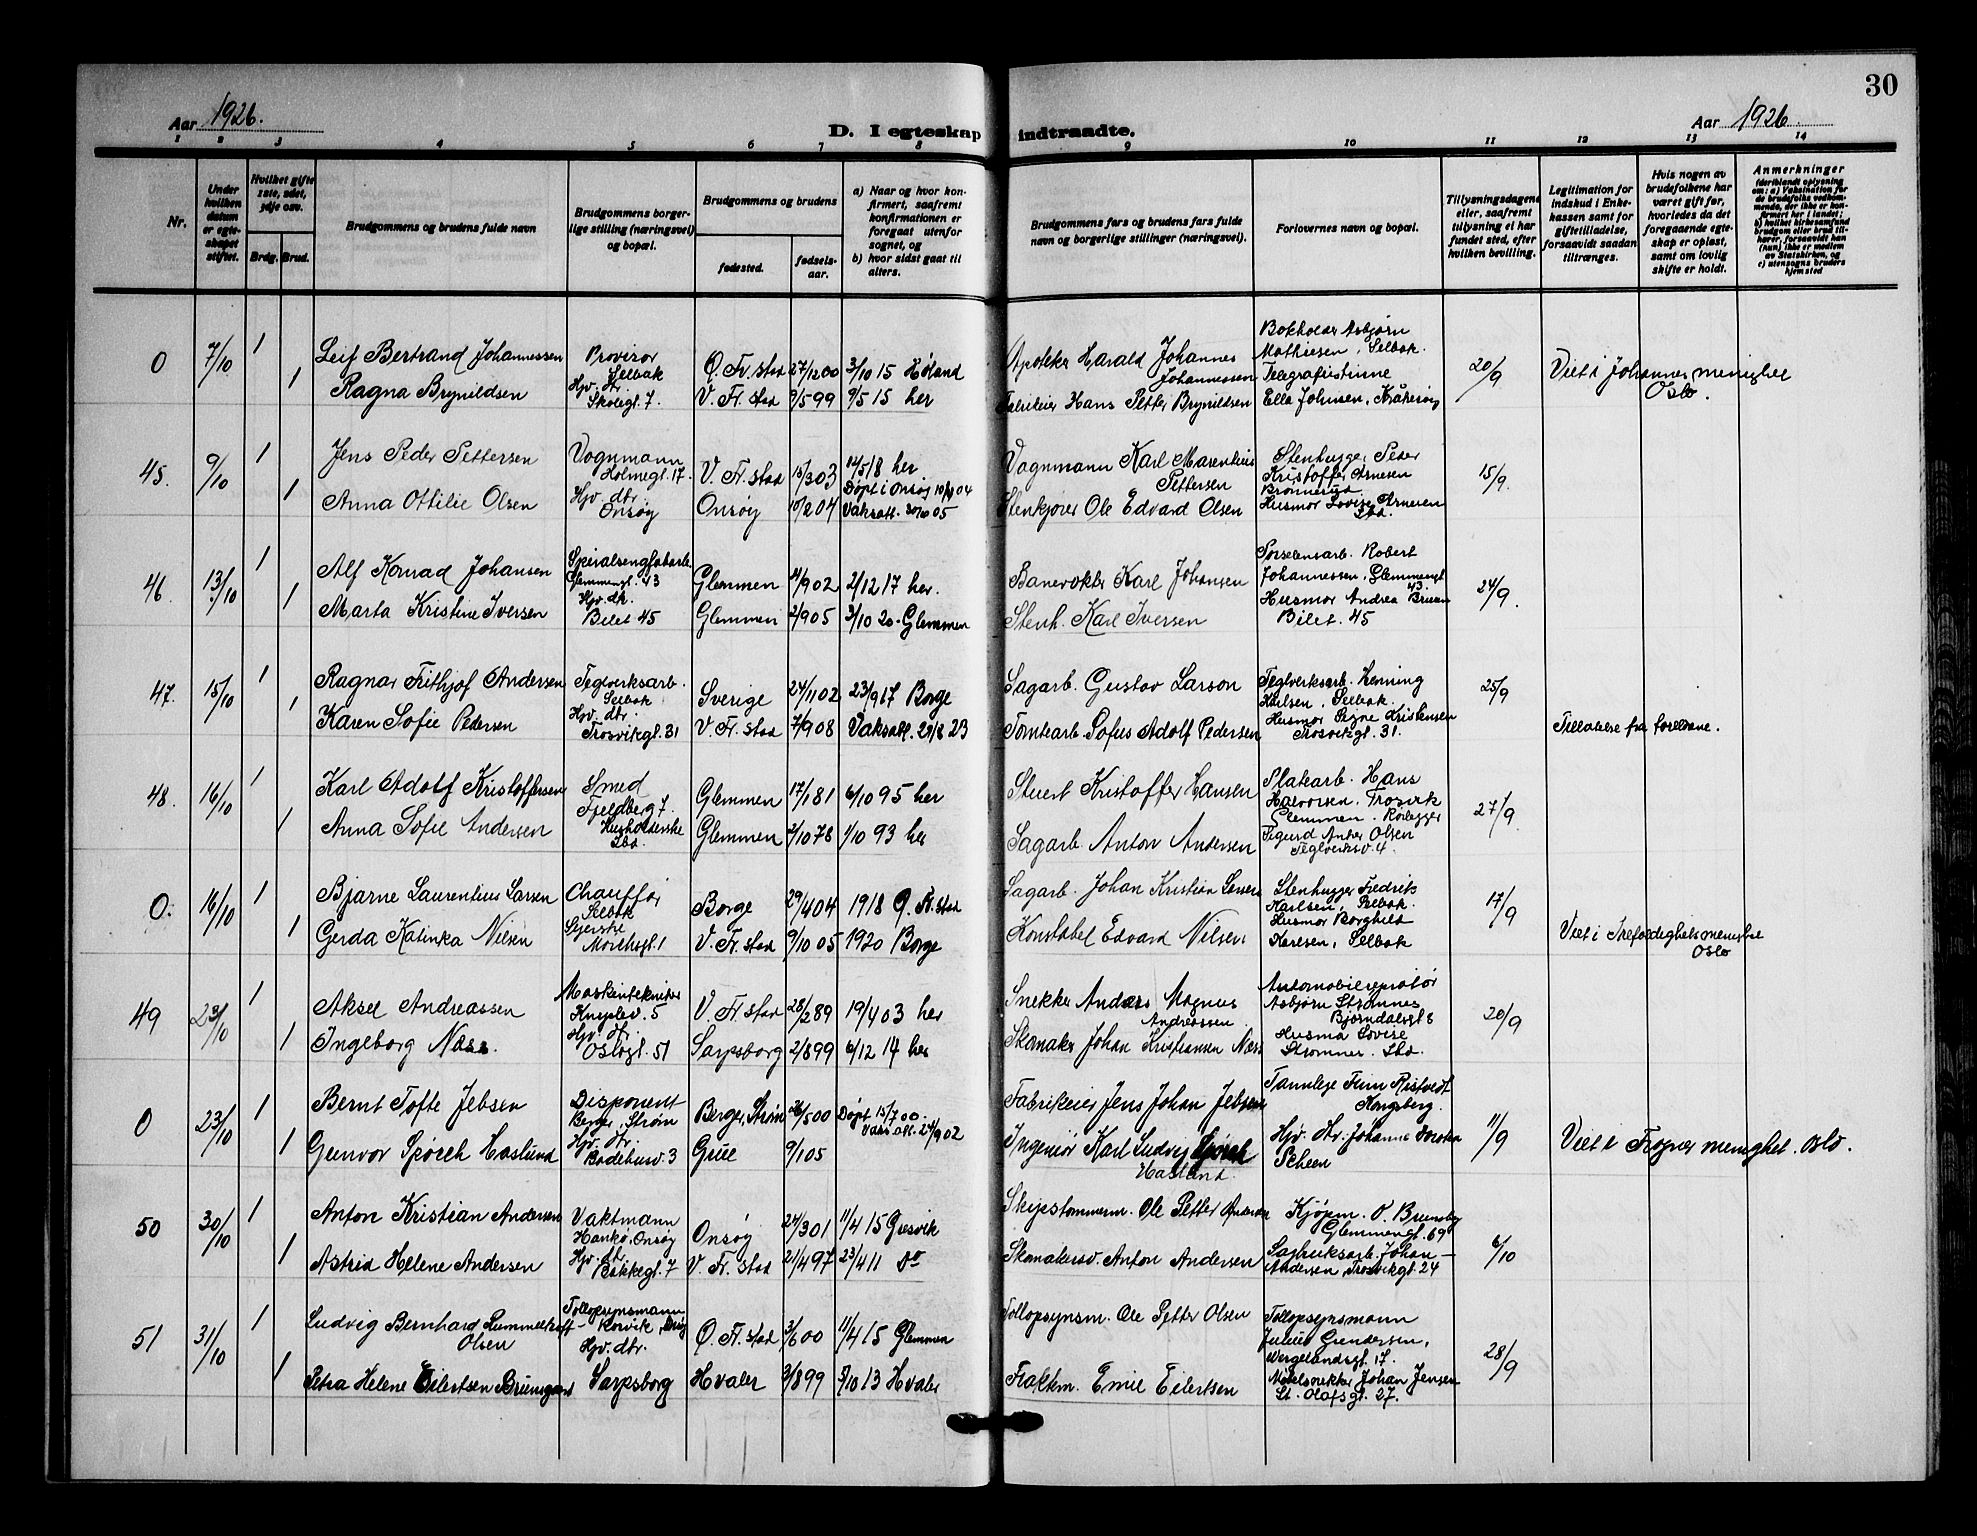 30
Aar 1926.
D. I egteskap indtraadte.
Aar 1926
1 2 3 4 5 6 7 8 9 10 11 12 13 14
Nr.
Under hvilken datum er egteskapet stiftet.
Hvilket gifte 1ste, 2det, 3dje osv.
Brdg. Brud.
Brudgommens og brudens fulde navn
Brudgommens borgerlige stilling (næringsvei) og bopæl.
Brudgommens og brudens
fødested.
fødselsaar.
a) Naar og hvor konfirmert, saafremt konfirmationen er foregaat utenfor sognet, og
b) hvor sidst gaat til alters.
Brudgommens fars og brudens fars fulde navn og borgerlige stillinger (næringsvei).
Forlovernes navn og bopæl.
Tillysningsdagene eller, saafremt tillysning ei har fundet sted, efter hvilken bevilling.
Legitimation for indskud i Enkekassen samt for giftetilladelse, forsaavidt saadan tiltrænges.
Hvis nogen av brudefolkene har været gift før, hvorledes da det foregaaende egteskap er opløst, samt om lovlig skifte er holdt.
Anmerkninger (deriblandt oplysning om: a) Vaksination for de brudefolks vedkommende, der ikke er konfirmert her i landet; b) hvilket kirkesamfund brudgom eller brud tilhører, forsaavidt han (hun) ikke er medlem av Statskirken, og c) utensogns bruders hjemsted
0 7/10 1 Leif Bertrand Johannessen Provisor Selbak Ø. Fr. stad 27/12 00 3/10 15 Høland Apoteker Harald Johannes Johannessen Bokholder Asbjørn Mathiesen, Selbak. 20/9 Viet i Johannes menighet Oslo.
1 Ragna Brynildsen Hjv. dtr. Skolegt. 7. V. Fr. stad 9/5 99 9/5 15 her Fabrikeier Hans Petter Brynildsen Telegrafistinne Ella Johnsen, Kråkerøy
45. 9/10 1 Jens Peder Pettersen Vognmann Holmegt. 17. V. Fr. stad 15/3 03 12/5 18 her. Vognmann Karl Marentius Pettersen Stenhugger Peder Kristoffer Arnesen 15/9.
1 Anna Ottilie Olsen Hjv. dtr. Onsøy Onsøy 10/2 04 Døpt i Onsøy 10/4 04 Vaksatt. 30/10 05 Stenkjører Ole Edvard Olsen Husmor Lovise Arnesen Sbd.
46. 13/10 1 Alf Konrad Johansen Glemmengt. 43 Glemmen 4/9 02 2/12 17 her. Banevokter Karl Johansen Robert Johannessen, Glemmengt 43. 24/9.
1 Marta Kristine Iversen Hjv. dtr. Bilet 45 Glemmen 2/9 05 3/10 20. Glemmen Stenh. Karl Iversen Husmor Andrea Bilet. 45
47. 15/10 1 Ragnar Frithjof Andersen Teglverksarb. Selbak Sverige 24/11 02 23/9 17 Borge Sagarb. Gustav Larson Teglverksarb. Henning Karlsen, Selbak. 25/9
1 Karen Sofie Pedersen Hjv. dtr. Trosvikgt. 31 V. Fr. stad 7/9 08 Vaksatt. 29/8 23 Tomtearb. Sofus Adolf Pedersen Husmor Signe Kristensen Trosvikgt. 31. Tillatelse fra foreldrene.
48. 16/10 1 Karl Adolf Kristoffersen Smed Fjeldberg 7. Glemmen 17/1 81 6/10 95 her Stuert Kristoffer Hansen Platearb. Hans Halvorsen, Trosvik Glemmen. 27/9.
1 Anna Sofie Andersen Husholderske Sbd. Glemmen 2/10 78 1/10 93 her Sagarb. Anton Andersen Rørlegger Sigurd Olsen Teglverksv. 4.
0. 16/10 1 Bjarne Laurentius Larsen Chauffør Selbak Borge 29/4 04 1918 Ø. Fr. stad Sagarb. Johan Kristian Larsen Stenhugger Fredrik Karlsen, Selbak. 17/9
1 Gerda Kalinka Nilsen V. Fr. stad 9/10 05 1920 Borge Konstabel Edvard Nilsen Husmor Borghild Karlsen, Selbak Viet i Trefoldighets menighet Oslo
49 23/10 1 Aksel Andreassen Maskintekniker V. Fr. stad 28/2 89 19/4 03 her Snekker Anders Magnus Andreassen. Automobilreparatør Asbjørn Strømnes Bjørndalsgt 8 20/9
1 Ingeborg Næss. Hjv. dtr. Oslogt. 51 Sarpsborg 2/8 99 6/12 14 her Skomaker Johan Kristiansen Næss Husmor Lovise Strømnes. Sbd.
0 23/10 1 Bernt Tofte Jebsen Disponent Berger, Strøm Berger, Strøm 26/5 00 Døpt 15/7 00. Vaks. att. 24/9 02 Fabrikeier Jens Johan Jebsen Tannlege Finn Ristvedt Kongsberg. 11/9
1 Gunvor Spørck Haslund Hjv. dtr. Badehusv. 3 Grue 9/1 05 Ingeniør Karl Ludvig Spørck Haslund. Hjv. dtr. Johanne Scheen Viet i Frogner menighet. Oslo.
50 30/10 1 Anton Kristian Andersen Vaktmann Hankø, Onsøy Onsøy 24/3 01 11/4 15 Gresvik Skipstømmerm. Ole Petter Andersen Kjøpm. O. Brunsby Glemmengt. 69 6/10
1 Astrid Helene Andersen Hjv. dtr. Bakkegt. 7 V. Fr. stad 21/4 97 23/4 11 do Skomakersv. Anton Andersen Sagbruksarb. Johan Andersen, Trosvikgt. 24
51 31/10 1 Ludvig Bernhard Rummelhoff Olsen Tollopsynsmann Ø. Fr. stad 3/6 00 11/4 15 Glemmen Tollopsynsm. Ole Petter Olsen Tollopsynsmann Julius Gundersen, Wergelandsgt. 17. 28/9
1 Petra Helene Eilertsen Hjv. dtr. Sarpsborg Hvaler 3/8 99 5/10 13 Hvaler Fraktm. Emil Eilertsen Møbelsnekker Johan Jensen St. Olafsgt. 27.